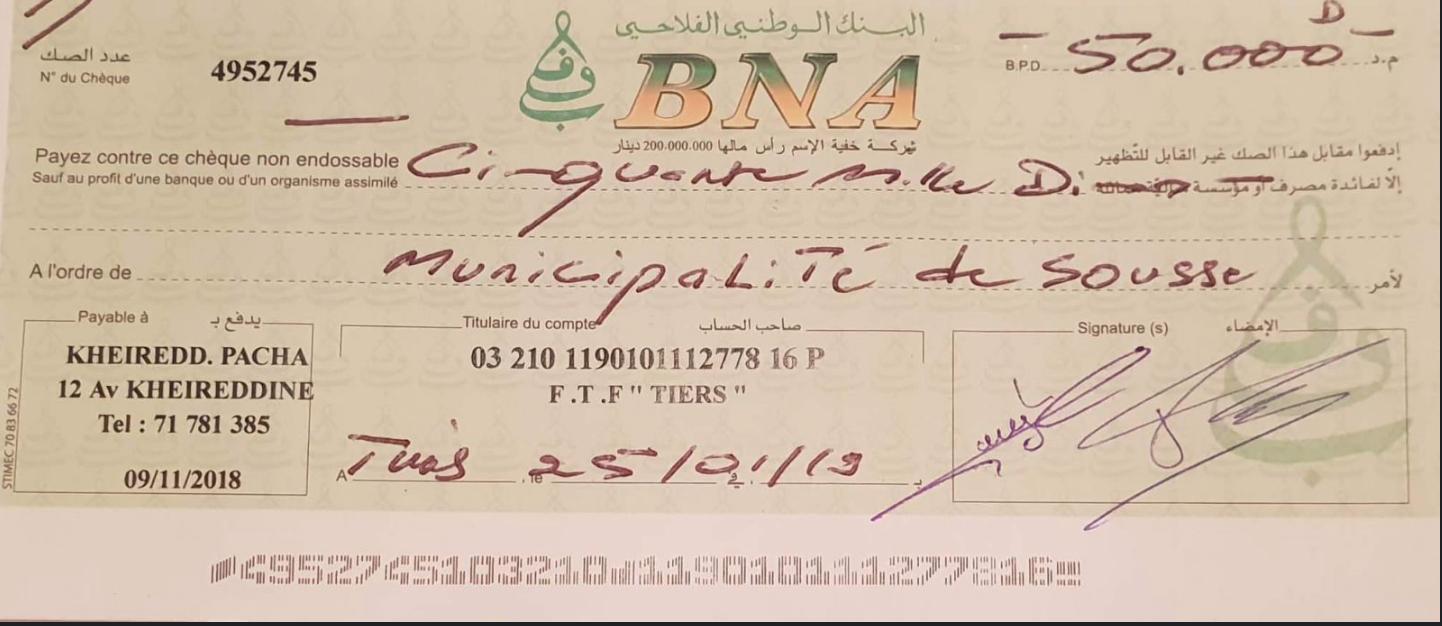 البنك الوطني الفلاحي
BNA
شركة خفية الإسم رأس مالها 200.000.000 دينار
عدد الصك
N° du Chèque 4952745
B.P.D. 50.000 D م.د
Payez contre ce chèque non endossable
Sauf au profit d'une banque ou d'un organisme assimilé
Cinquante Mille D.
إدفعوا مقابل هذا الصك غير القابل للتظهير
إلّا لفائدة مصرف أو مؤسسة
A l'ordre de Municipalité de Sousse لأمر
Payable à يدفع بـ
KHEIREDD. PACHA
12 Av KHEIREDDINE
Tel : 71 781 385
09/11/2018
Titulaire du compte صاحب الحساب
03 210 1190101112778 16 P
F .T .F " TIERS "
A Tunis , le 25/01/19 في بـ
Signature (s) الإمضاء
STIMEC 70 83 66 72
4952745103210 119010111277816